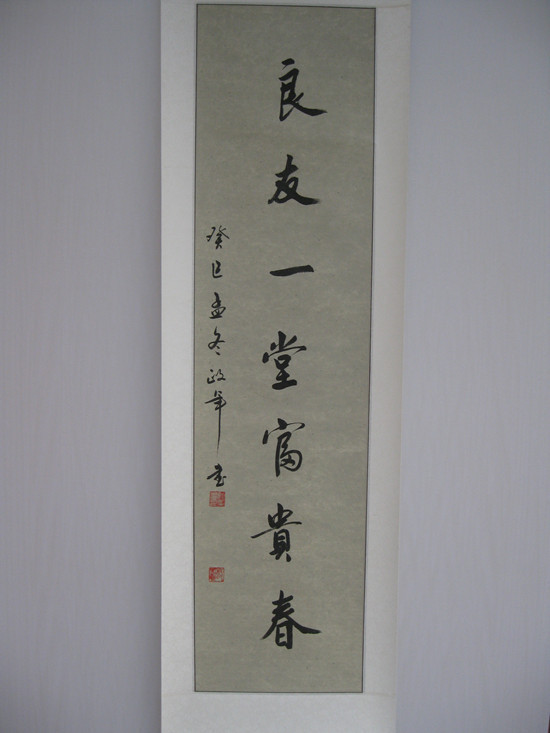 良友一堂富貴春
癸巳孟冬政军书